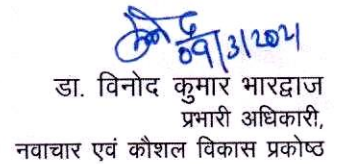 09/3/2021
डा. विनोद कुमार भारद्वाज
प्रभारी अधिकारी,
नवाचार एवं कौशल विकास प्रकोष्ठ